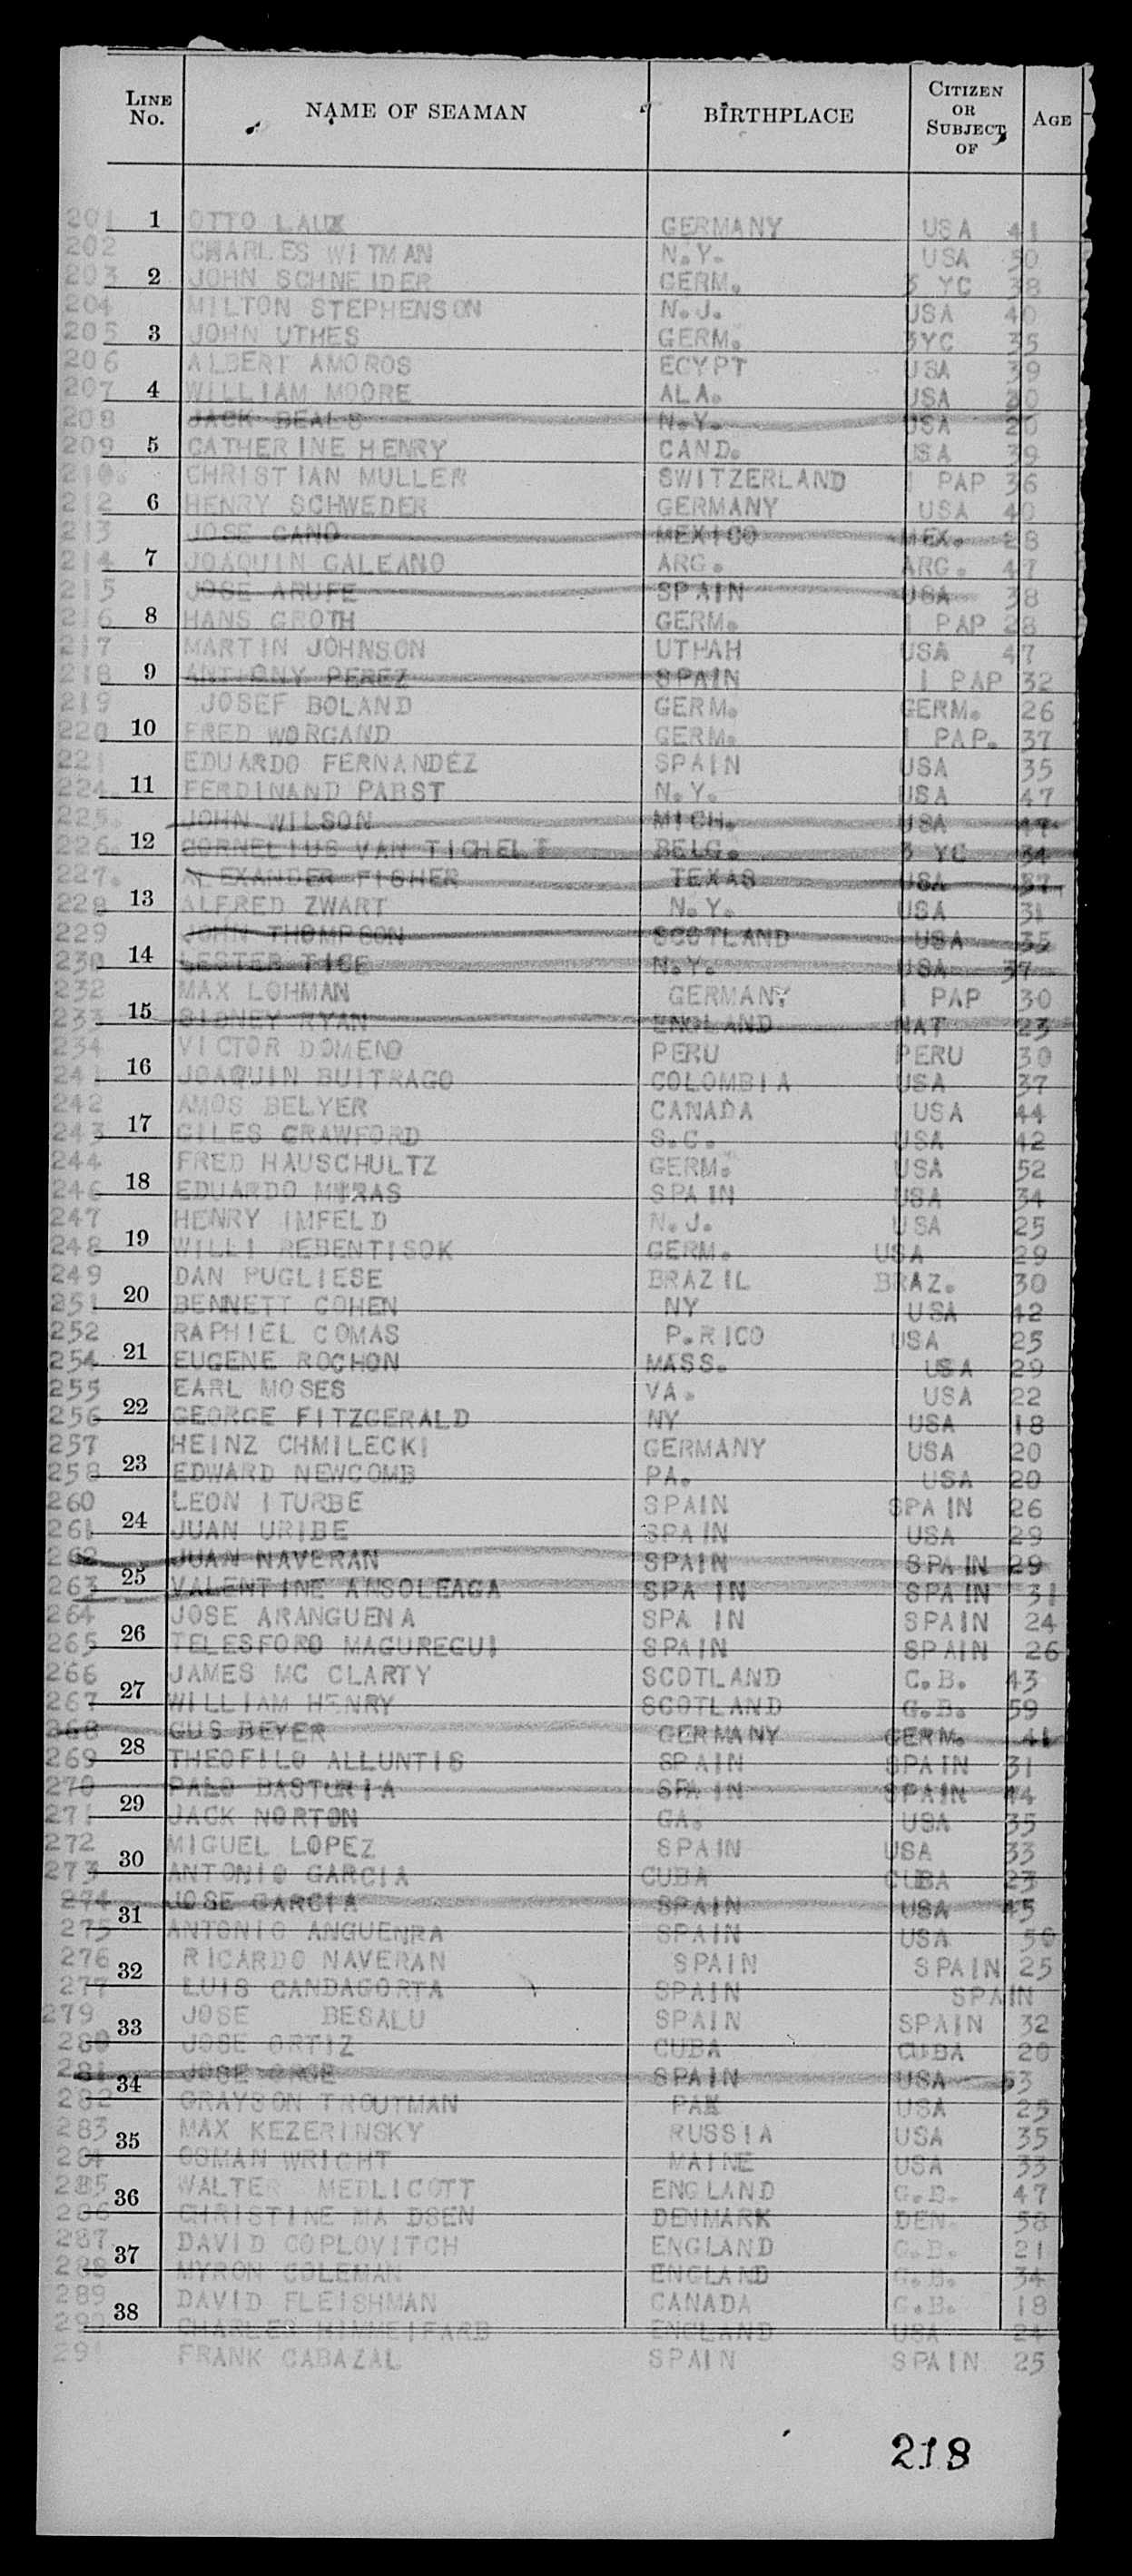 LINE No. NAME OF SEAMAN BIRTHPLACE CITIZEN OR SUBJECT OF AGE
201 1 OTTO LAUX GERMANY USA 41
202 CHARLES WITMAN N.Y. USA 50
203 2 JOHN SCHNEIDER GERM. 3 YC 38
204 MILTON STEPHENSON N.J. USA 40
205 3 JOHN UTHES GERM. 3YC 35
206 ALBERT AMOROS EGYPT USA 39
207 4 WILLIAM MOORE ALA. USA
208 JACK BEALS N.Y. USA 20
209 5 CATHERINE HENRY CAND. USA 39
210. CHRISTIAN MULLER SWITZERLAND 1 PAP 36
212 6 HENRY SCHWEDER GERMANY USA 40
213 JOSE CANO MEXICO MEX. 28
214 7 JOAQUIN GALEANO ARG. ARG. 47
215 JOSE ARUFE SPAIN USA 38
216 8 HANS GROTH GERM. 1 PAP 28
217 MARTIN JOHNSON UTHAH USA 47
218 9 ANTHONY PEREZ SPAIN 1 PAP 32
219 JOSEF BOLAND GERM. GERM. 26
220 10 FRED WORGAND GERM. 1 PAP. 37
221 EDUARDO FERNANDEZ SPAIN USA 35
224. 11 FERDINAND PABST N.Y. USA 47
225. JOHN WILSON MICH. USA 47
226. 12 CORNELIUS VAN TICHELT BELG. 3 YC 34
227. ALEXANDER FISHER TEXAS USA 37
228 13 ALFRED ZWART N.Y. USA 31
229 JOHN THOMPSON SCOTLAND USA 35
230 14 LESTER TICE N.Y. USA 37
232 MAX LOHMAN GERMANY 1 PAP 30
233 15 SIDNEY RYAN ENGLAND NAT 23
234 VICTOR DOMENO PERU PERU 30
241 16 JOAQUIN BUITRAGO COLOMBIA USA 37
242 AMOS BELYER CANADA USA 44
243 17 GILES CRAWFORD S.C. USA 42
244 FRED HAUSCHULTZ GERM. USA 52
246 18 EDUARDO MIRAS SPAIN USA 34
247 HENRY IMFELD N.J. USA 25
248 19 WILLI REBENTISOK GERM. USA 29
249 DAN PUGLIESE BRAZIL BRAZ. 30
251 20 BENNETT COHEN NY USA 42
252 RAPHIEL COMAS P.RICO USA 25
254 21 EUGENE ROCHON MASS. USA 29
255 EARL MOSES VA. USA 22
256 22 GEORGE FITZGERALD NY USA 18
257 HEINZ CHMILECKI GERMANY USA 20
258 23 EDWARD NEWCOMB PA. USA 20
260 LEON ITURBE SPAIN SPAIN 26
261 24 JUAN URIBE SPAIN USA 29
262 JUAN NAVERAN SPAIN SPAIN 29
263 25 VALENTINE ANSOLEAGA SPAIN SPAIN 31
264 JOSE ARANGUENA SPAIN SPAIN 24
265 26 TELESFORO MAGUREGUI SPAIN SPAIN 26
266 JAMES MC CLARTY SCOTLAND G.B. 43
267 27 WILLIAM HENRY SCOTLAND G.B. 59
268 GUS BEYER GERMANY GERM. 41
269 28 THEOFILO ALLUNTIS SPAIN SPAIN 31
270 PALO BASTURIA SPAIN SPAIN 44
271 29 JACK NORTON GA. USA 35
272 MIGUEL LOPEZ SPAIN USA 33
273 30 ANTONIO GARCIA CUBA CUBA 23
274 JOSE GARCIA SPAIN USA 45
275 31 ANTONIO ANGUENRA SPAIN USA 50
276 RICARDO NAVERAN SPAIN SPAIN 25
277 32 LUIS CANDAGORTA SPAIN SPAIN
279 JOSE BESALU SPAIN SPAIN 32
280 33 JOSE ORTIZ CUBA CUBA 20
281 JOSE SPAIN USA 53
282 34 GRAYSON TROUTMAN PA USA 25
283 MAX KEZERINSKY RUSSIA USA 35
284 35 OSMAN WRIGHT MAINE USA 33
285 WALTER MEDLICOTT ENGLAND G.B. 47
286 36 CHRISTINE MADSEN DENMARK DEN. 58
287 DAVID COPLOVITCH ENGLAND G.B. 21
288 37 MYRON COLEMAN ENGLAND G.B. 34
289 DAVID FLEISHMAN CANADA G.B. 18
290 38 CHARLES HIMMELFARB ENGLAND USA 24
291 FRANK CABAZAL SPAIN SPAIN 25
218